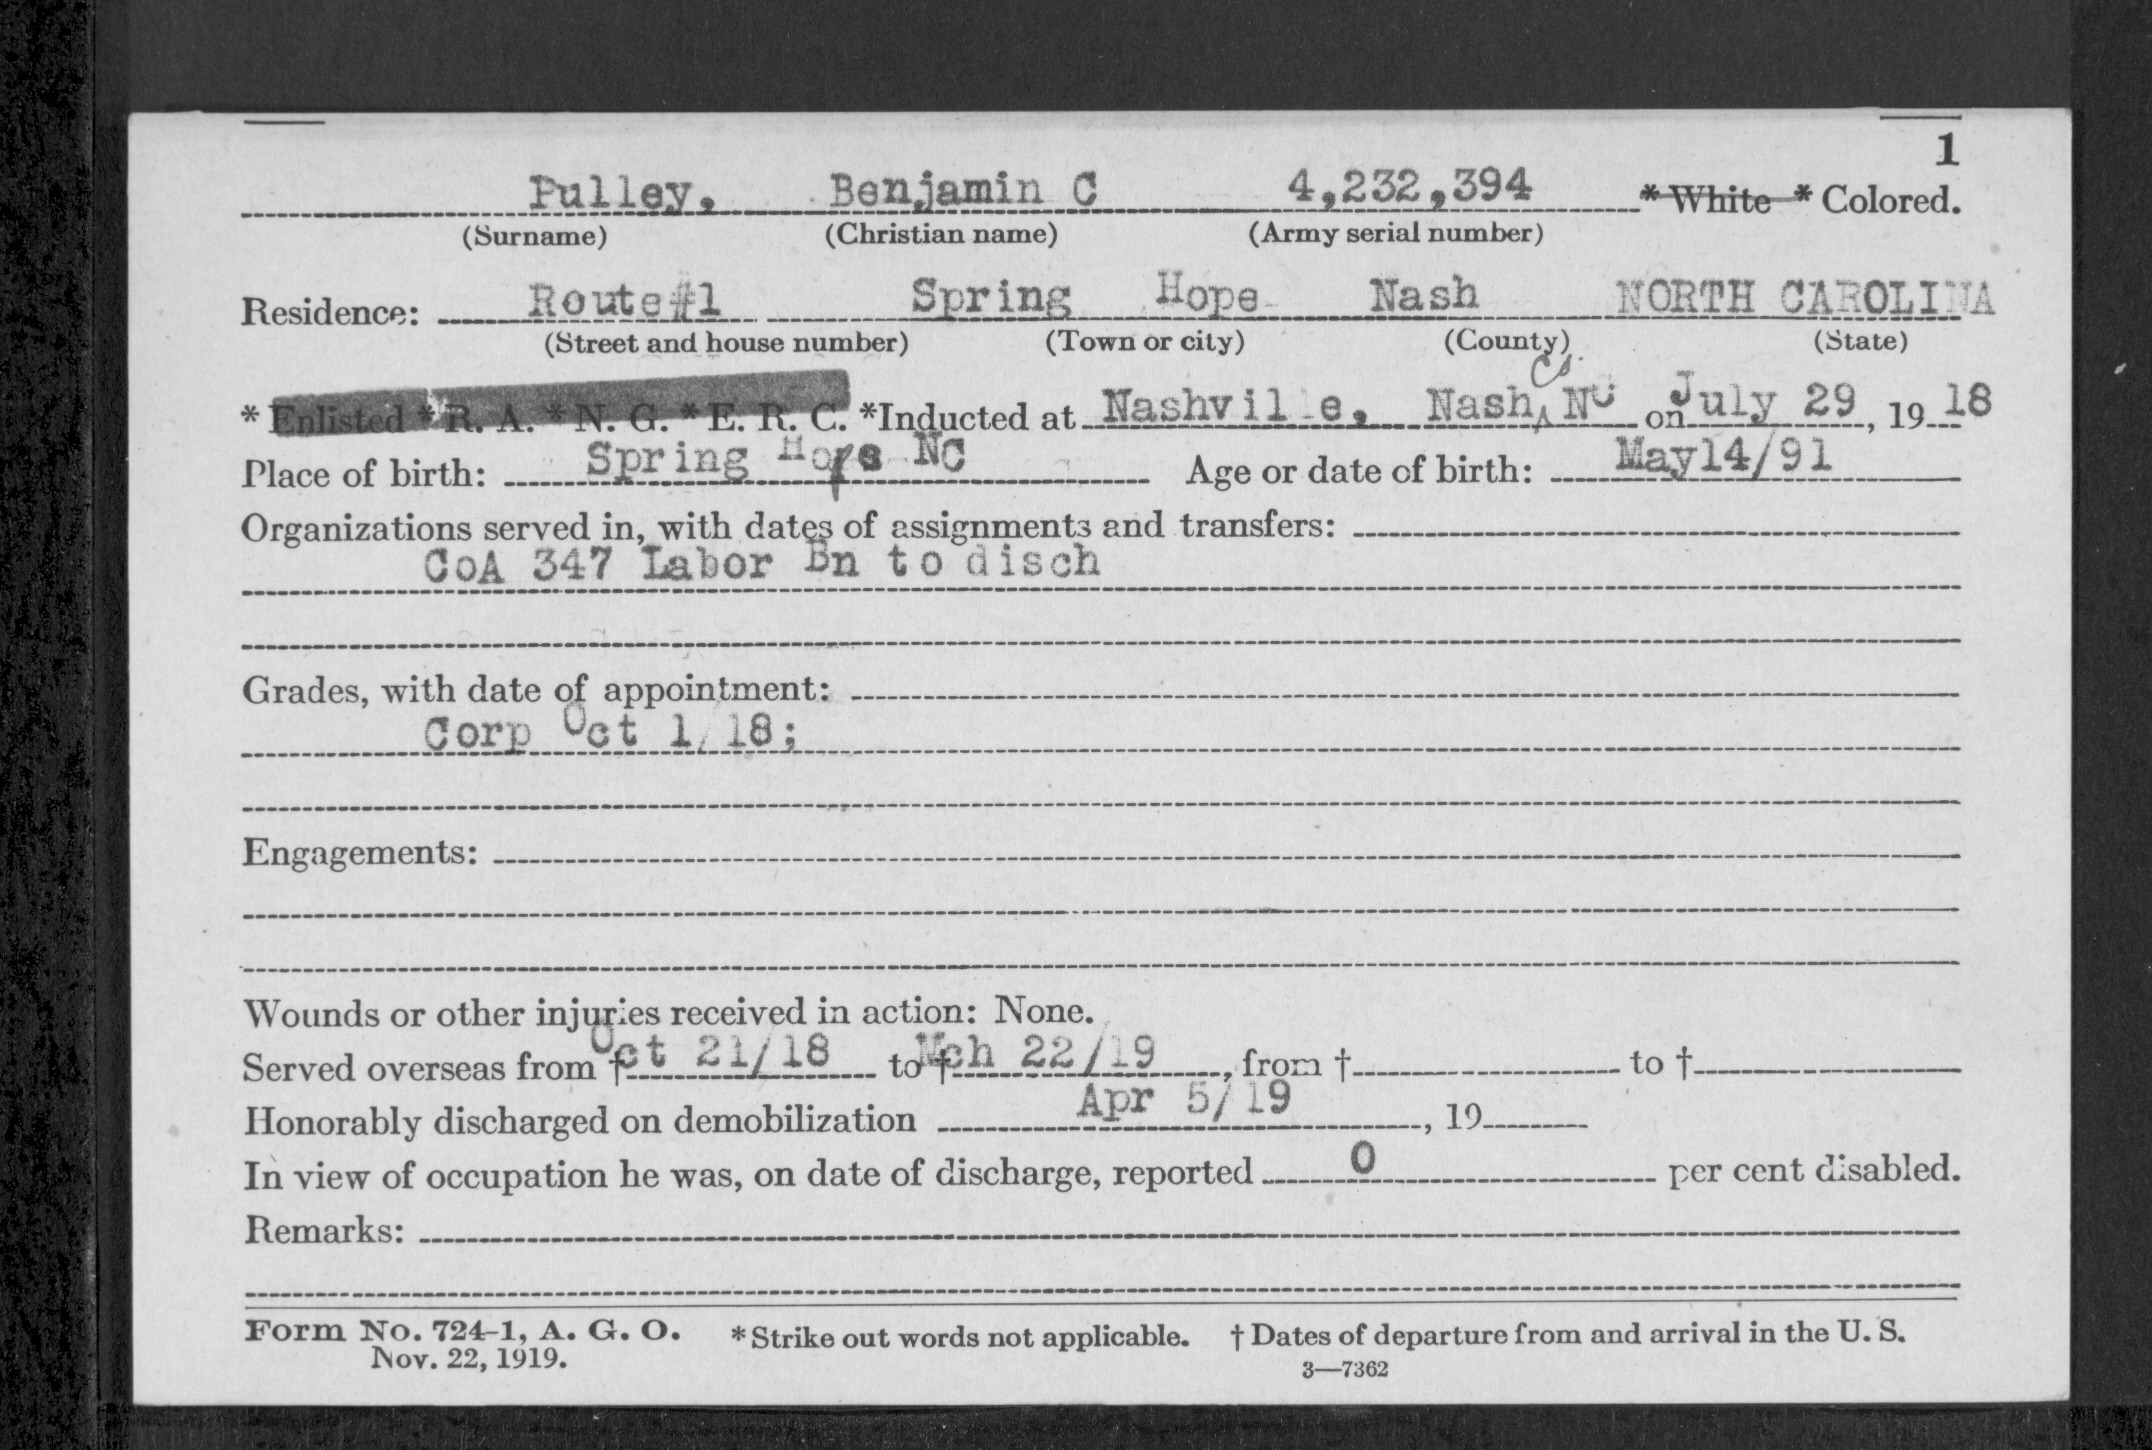 1
Pulley, Benjamin C 4,232,394 * White * Colored.
(Surname) (Christian name) (Army serial number)
Residence: Route#1 Spring Hope Nash NORTH CAROLINA
(Street and house number) (Town or city) (County) (State)
* Enlisted * R. A. * N. G. * E. R. C. *Inducted at Nashville, Nash Co. NC on July 29, 1918
Place of birth: Spring Hope NC Age or date of birth: May14/91
Organizations served in, with dates of assignments and transfers:
CoA 347 Labor Bn to disch
Grades, with date of appointment:
Corp Oct 1/18;
Engagements:
Wounds or other injuries received in action: None.
Served overseas from † Oct 21/18 to † Mch 22/19, from † to †
Honorably discharged on demobilization Apr 5/19, 19
In view of occupation he was, on date of discharge, reported 0 per cent disabled.
Remarks:
Form No. 724-1, A. G. O. * Strike out words not applicable. † Dates of departure from and arrival in the U. S.
Nov. 22, 1919. 3—7362